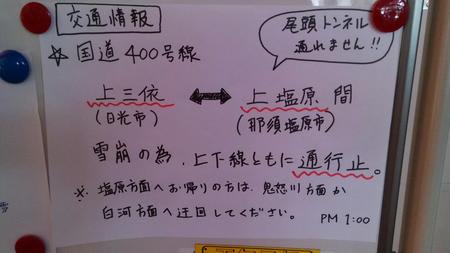 交通情報
尾頭トンネル
通れません!!
☆ 国道400号線
上三依 ⟷ 上塩原 間
(日光市) (那須塩原市)
雪崩の為、上下線ともに通行止。
※ 塩原方面へお帰りの方は、鬼怒川方面か
白河方面へ迂回してください。 PM 1:00